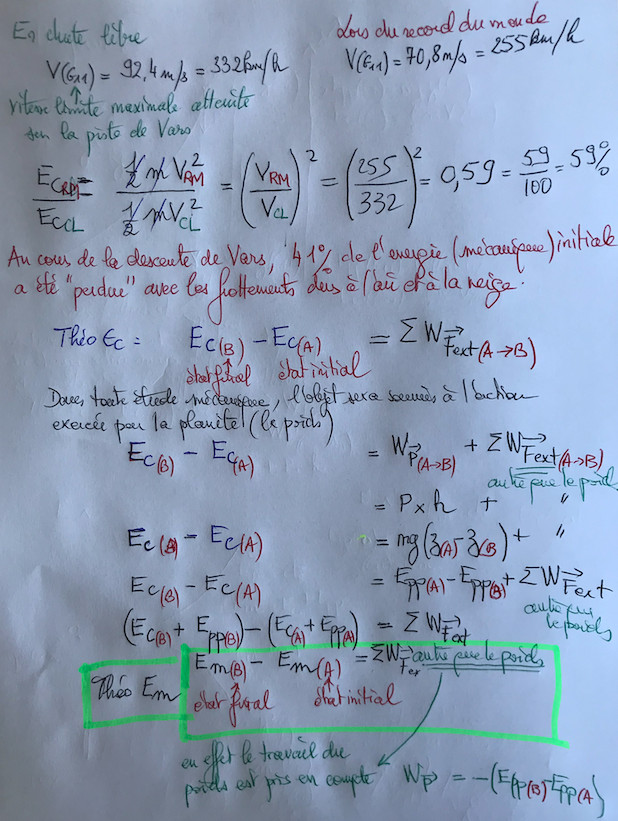 En chute libre
Lors du record du monde
V(G11) = 92,4 m/s = 332 km/h
V(G11) = 70,8 m/s = 255 km/h
vitesse limite maximale atteinte
sur la piste de Vars
EcRM / EcCL = ½ m VRM² / ½ m VCL² = (VRM / VCL)² = (255 / 332)² = 0,59 = 59/100 = 59%
Au cours de la descente de Vars, 41% de l'énergie (mécanique) initiale
a été "perdue" avec les frottements dus à l'air et à la neige.
Théo Ec : Ec(B) - Ec(A) = ΣW Fext(A→B)
état final état initial
Dans toute étude mécanique, l'objet sera soumis à l'action
exercée par la planète (le poids)
Ec(B) - Ec(A) = W P(A→B) + ΣW Fext(A→B)
autre que le poids
= P × h + "
Ec(B) - Ec(A) = mg(z(A) - z(B)) + "
Ec(B) - Ec(A) = Epp(A) - Epp(B) + ΣW Fext
autre que
le poids
(Ec(B) + Epp(B)) - (Ec(A) + Epp(A)) = ΣW Fext
Théo Em
Em(B) - Em(A) = ΣW Fex autre que le poids
état final état initial
en effet le travail du
poids est pris en compte W P = -(Epp(B) - Epp(A)